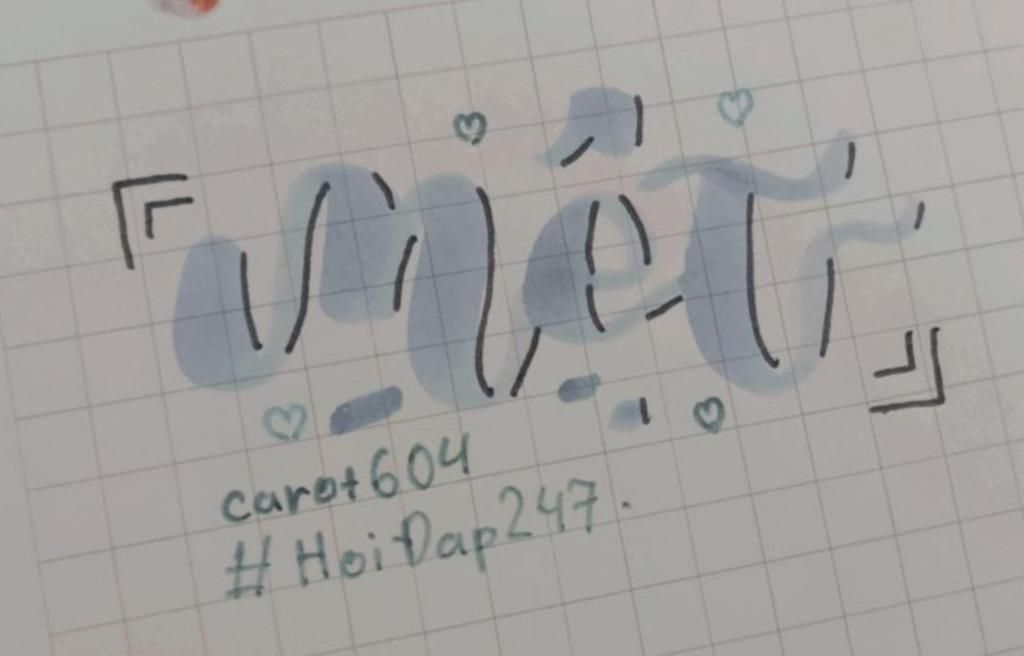 『mệt』
carot604
#HoiDap247.